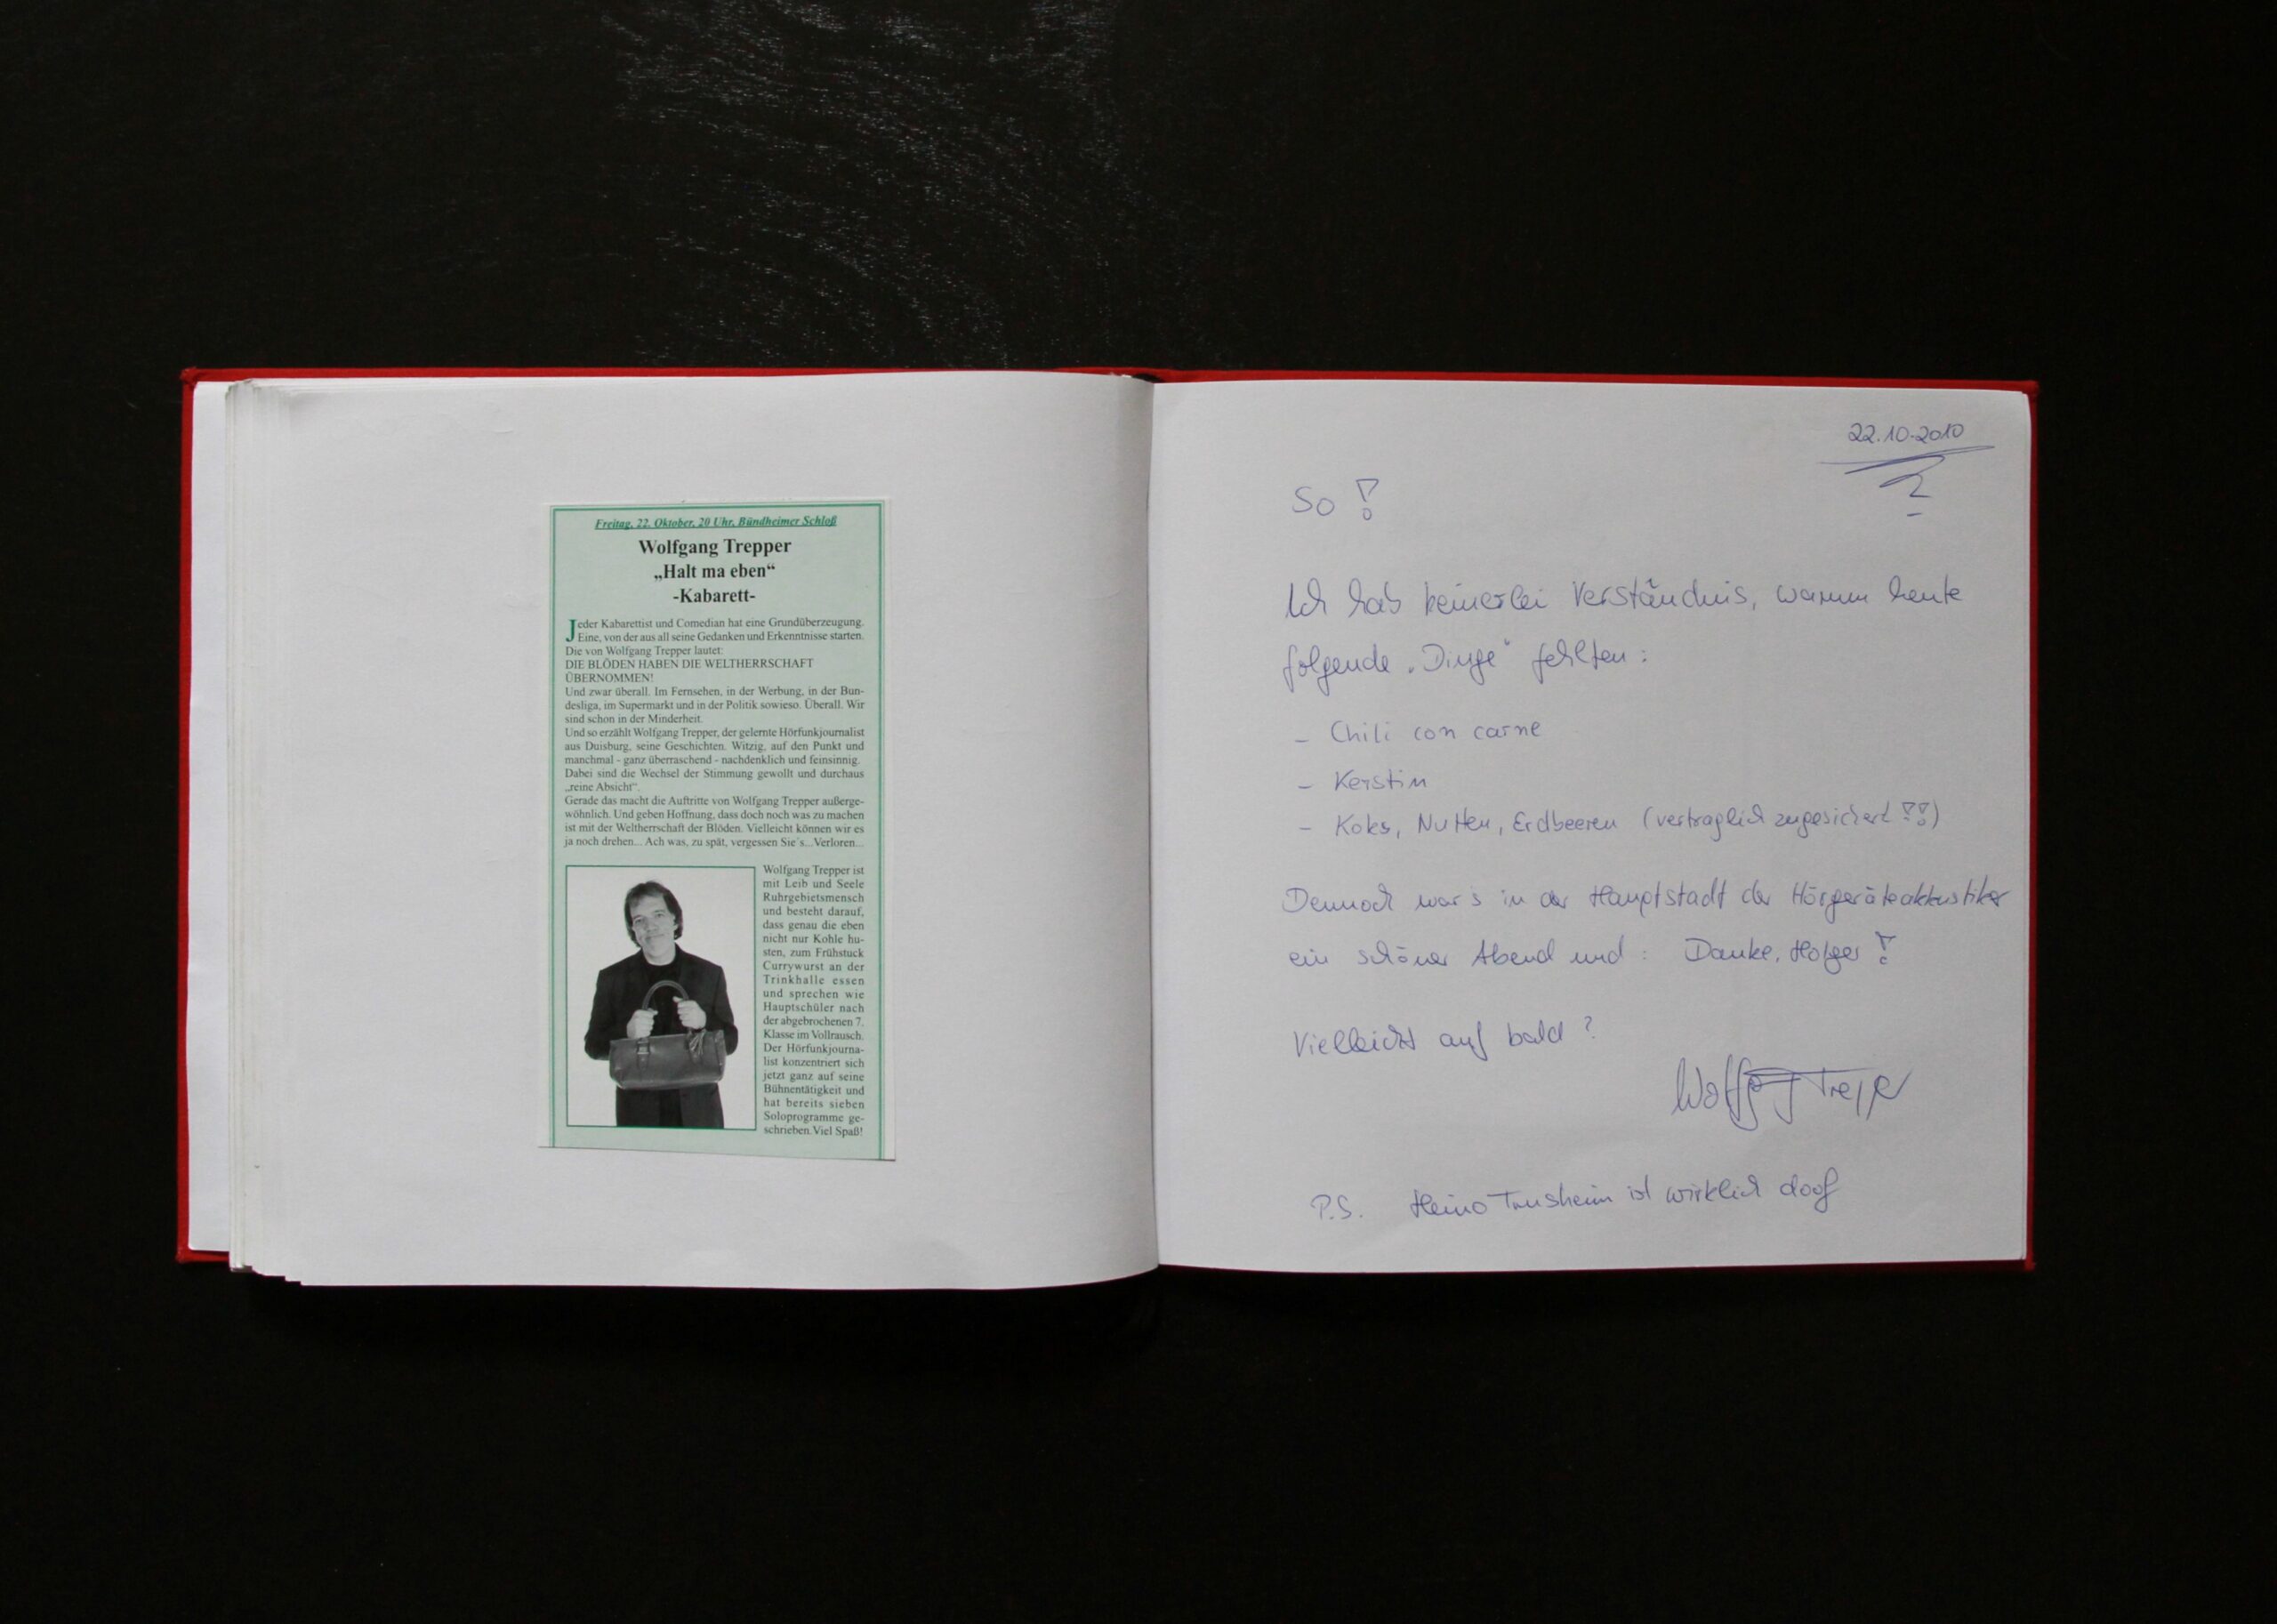 Freitag, 22. Oktober, 20 Uhr, Bündheimer Schloß
Wolfgang Trepper
„Halt ma eben“
-Kabarett-
Jeder Kabarettist und Comedian hat eine Grundüberzeugung.
Eine, von der aus all seine Gedanken und Erkenntnisse starten.
Die von Wolfgang Trepper lautet:
DIE BLÖDEN HABEN DIE WELTHERRSCHAFT
ÜBERNOMMEN!
Und zwar überall. Im Fernsehen, in der Werbung, in der Bun-
desliga, im Supermarkt und in der Politik sowieso. Überall. Wir
sind schon in der Minderheit.
Und so erzählt Wolfgang Trepper, der gelernte Hörfunkjournalist
aus Duisburg, seine Geschichten. Witzig, auf den Punkt und
manchmal - ganz überraschend - nachdenklich und feinsinnig.
Dabei sind die Wechsel der Stimmung gewollt und durchaus
„reine Absicht“.
Gerade das macht die Auftritte von Wolfgang Trepper außerge-
wöhnlich. Und geben Hoffnung, dass doch noch was zu machen
ist mit der Weltherrschaft der Blöden. Vielleicht können wir es
ja noch drehen... Ach was, zu spät, vergessen Sie´s...Verloren...
Wolfgang Trepper ist
mit Leib und Seele
Ruhrgebietsmensch
und besteht darauf,
dass genau die eben
nicht nur Kohle hu-
sten, zum Frühstuck
Currywurst an der
Trinkhalle essen
und sprechen wie
Hauptschüler nach
der abgebrochenen 7.
Klasse im Vollrausch.
Der Hörfunkjourna-
list konzentriert sich
jetzt ganz auf seine
Bühnentätigkeit und
hat bereits sieben
Soloprogramme ge-
schrieben.Viel Spaß!
22.10.2010
So !
Ich hab keinerlei Verständnis, warum heute
folgende „Dinge“ fehlten :
- Chili con carne
- Kerstin
- Koks, Nutten, Erdbeeren (vertraglich zugesichert !!!)
Dennoch war's in der Hauptstadt der Hörgeräteakkustiker
ein schöner Abend und : Danke, Holger !
Vielleicht auf bald ?
Wolfgang Trepper
P.S. Heino Trusheim ist wirklich doof